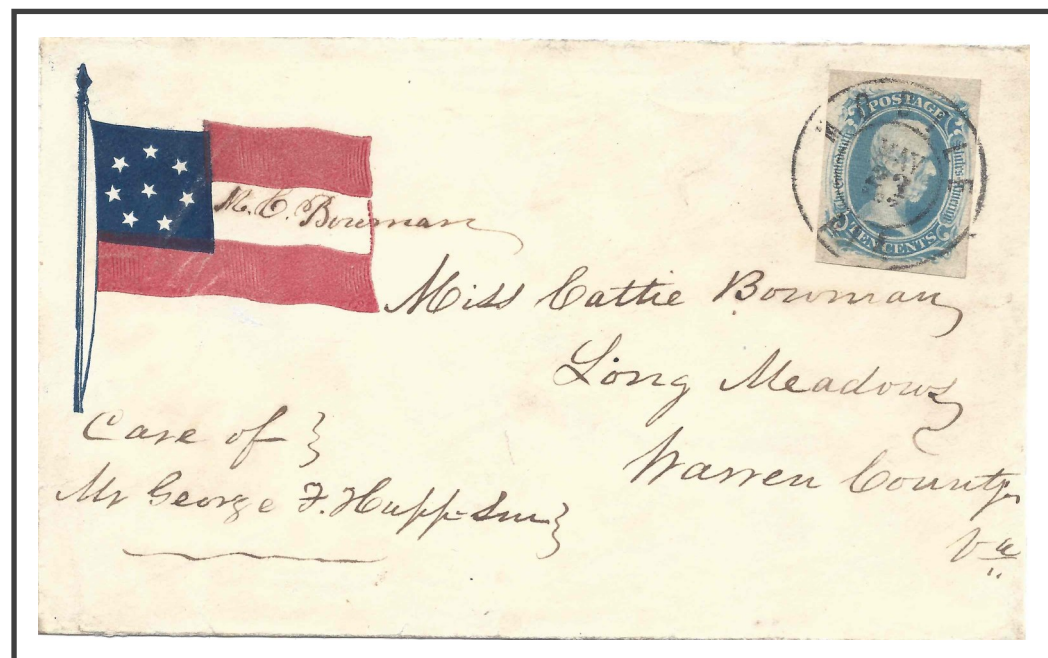 M. C. Bowman
POSTAGE
TEN CENTS
MOBILE
MAY
Miss Cattie Bowman
Long Meadows
Warren County
Va
Care of
Mr George F. Hupp Snr